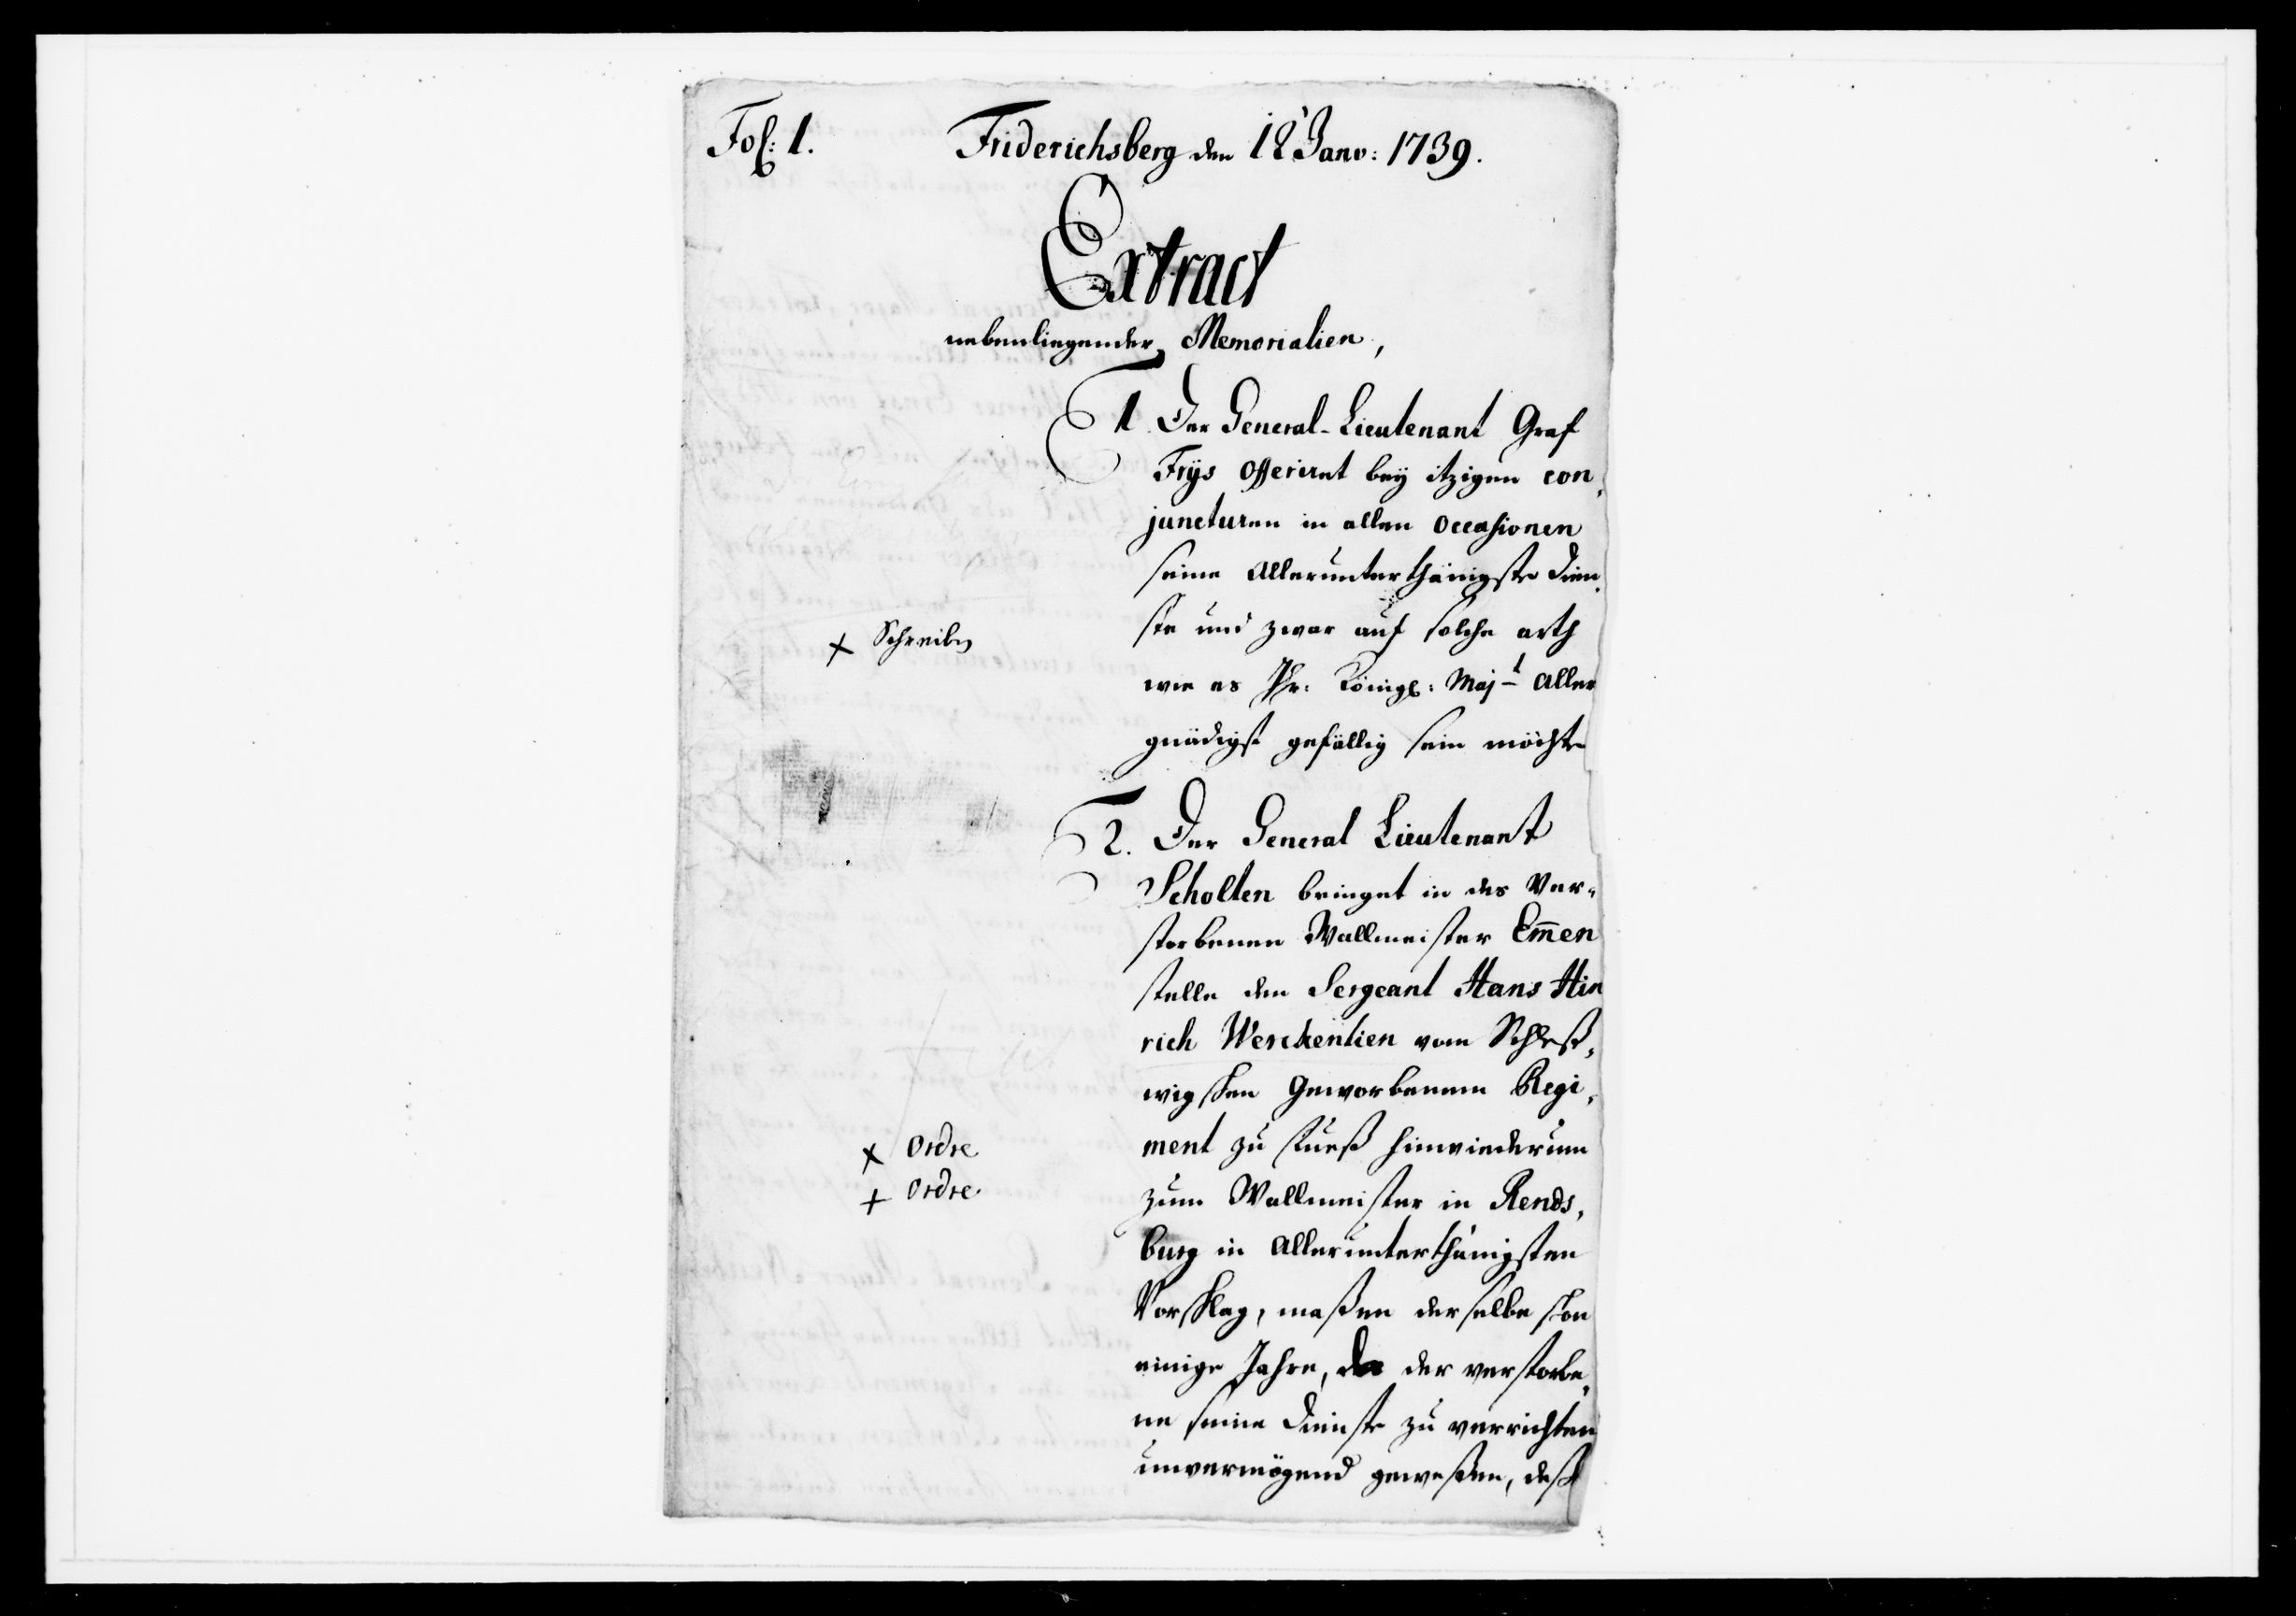 Fol: 1. Friderichsberg den 12' Janv: 1739.
Extract
nebenliegender Memorialien,
1 Der General-Lieutenant Graf
Frÿs Offeriret beÿ itzigen con,
juncturen in allen Occasionen
seine Allerunterthänigste Dien,
ste und zwar auf solche arth
wie es Ihr: Königl: Maj-t Aller
gnädigst gefällig sein möchte
× Schreiben
2. Der General Lieutenant
Scholten bringet in des Ver-
storbenen Wallmeister Em̄en
stelle den Sergeant Hans Hin
rich Werckentien vom Schleß,
wigschen Geworbenem Regi,
ment zu Fueß hinwiederum
zum Wallmeister in Rends,
burg in Allerunterthänigsten
Vorschlag, maßen derselbe schon
einige Jahre, da der verstorbe,
ne seine Dienste zu verrichten
unvermögend geweßen, deß
× Ordre
+ Ordre